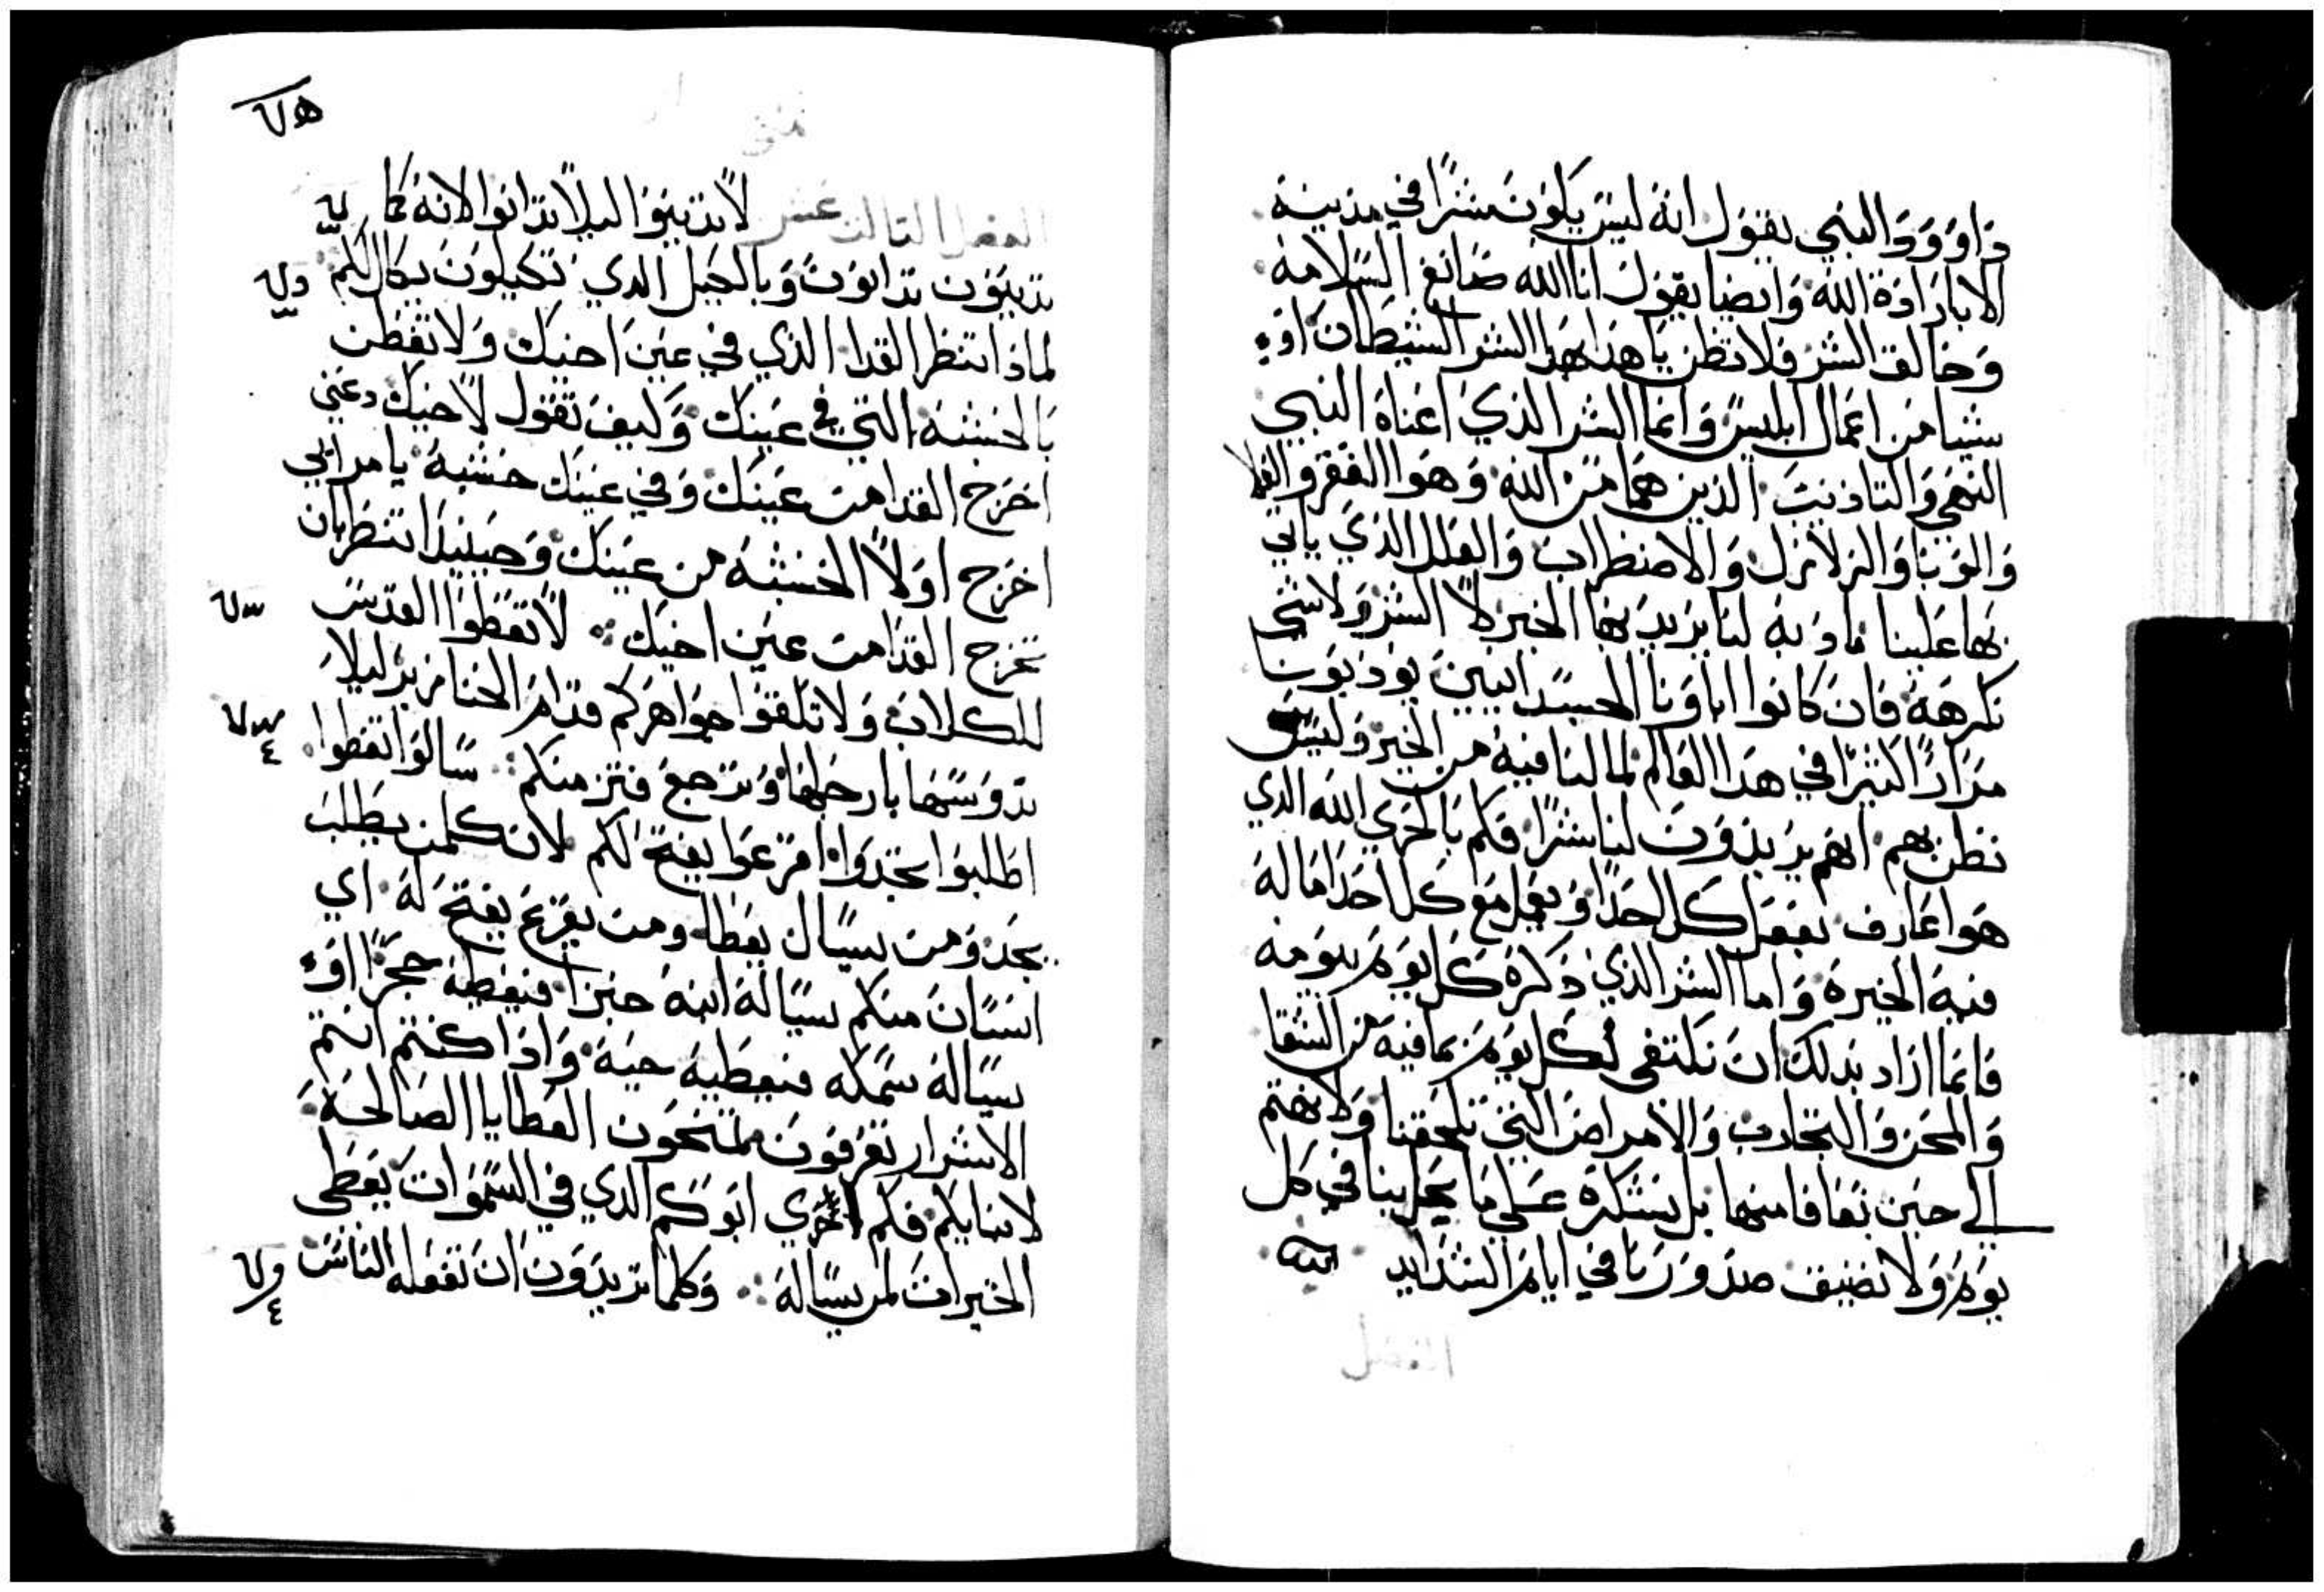 داوود النبي يقول انه ليس يكون شرًا في مدينة
الا بارادة الله وايضا يقول انا الله صانع السلامه
وخالق الشر فلا تظن يا هذا بهذا الشر الشيطان او
شيا من اعمال ابليس وانما الشر الذي اعناه النبي
النهي والتاديب الذين هما من الله وهوا الفقر والغلا
والوبا والزلازل والاضطراب والعلل الذي ياتي
بها علينا مادبه لنا يريد بها الخير لا الشر ولا شي
نكرهه فان كانوا اباونا الجسدانيين يودبونا
مرارًا كثيرًا في هذا العالم لما لنا فيه من الخير وليس
نظن بهم انهم يريدون لنا شرًا فكم بالحري الله الذي
هوا عارف بفعل كل احدًا ويفعل مع كل احد اما له
فيه الخيرة واما الشر الذي ذكره كل يوم بيومه
فانما اراد بذلك ان نكتفي لكل يوم بما فيه من الشقا
والمحن والتجارب والامراض التي تلحقنا ولا نهتم
الي حين نعافا منها بل نشكره علي ما يحل بنا في كل
يوم ولا تضيق صدورنا في ايام الشدايد
الفصل
متى
الفصل الثالث عشر لا تدينوا ليلا تدانوا لانه كما
تدينون تدانون وبالكيل الذي تكيلون يكال لكم
لماذا تنظر القذا الذي في عين اخيك ولا تفطن
بالخشبة التي في عينك وكيف تقول لاخيك دعني
اخرج القذا من عينك وفي عينك خشبة يا مرايي
اخرج اولًا الخشبة من عينك وحينيذ تنظر بان
تخرج القذا من عين اخيك لا تعطوا القدس
للكلاب ولا تلقوا جواهركم قدام الخنازير ليلا
تدوسها بارجلها وترجع فتزمنكم سالوا تعطوا
اطلبوا تجدوا اقرعوا يفتح لكم لان كلمن يطلب
يجد ومن يسال يعطا ومن يقرع يفتح له اي
انسان منكم يساله ابنه خبزًا فيعطيه حجرًا او
يساله سمكه فيعطيه حية واذا كنتم انتم
الاشرار تعرفون تمنحون العطايا الصالحة
لابنايكم فكم احري ابوكم الذي في السموات يعطي
الخيرات لمن يساله وكلما تريدون ان تفعله الناس